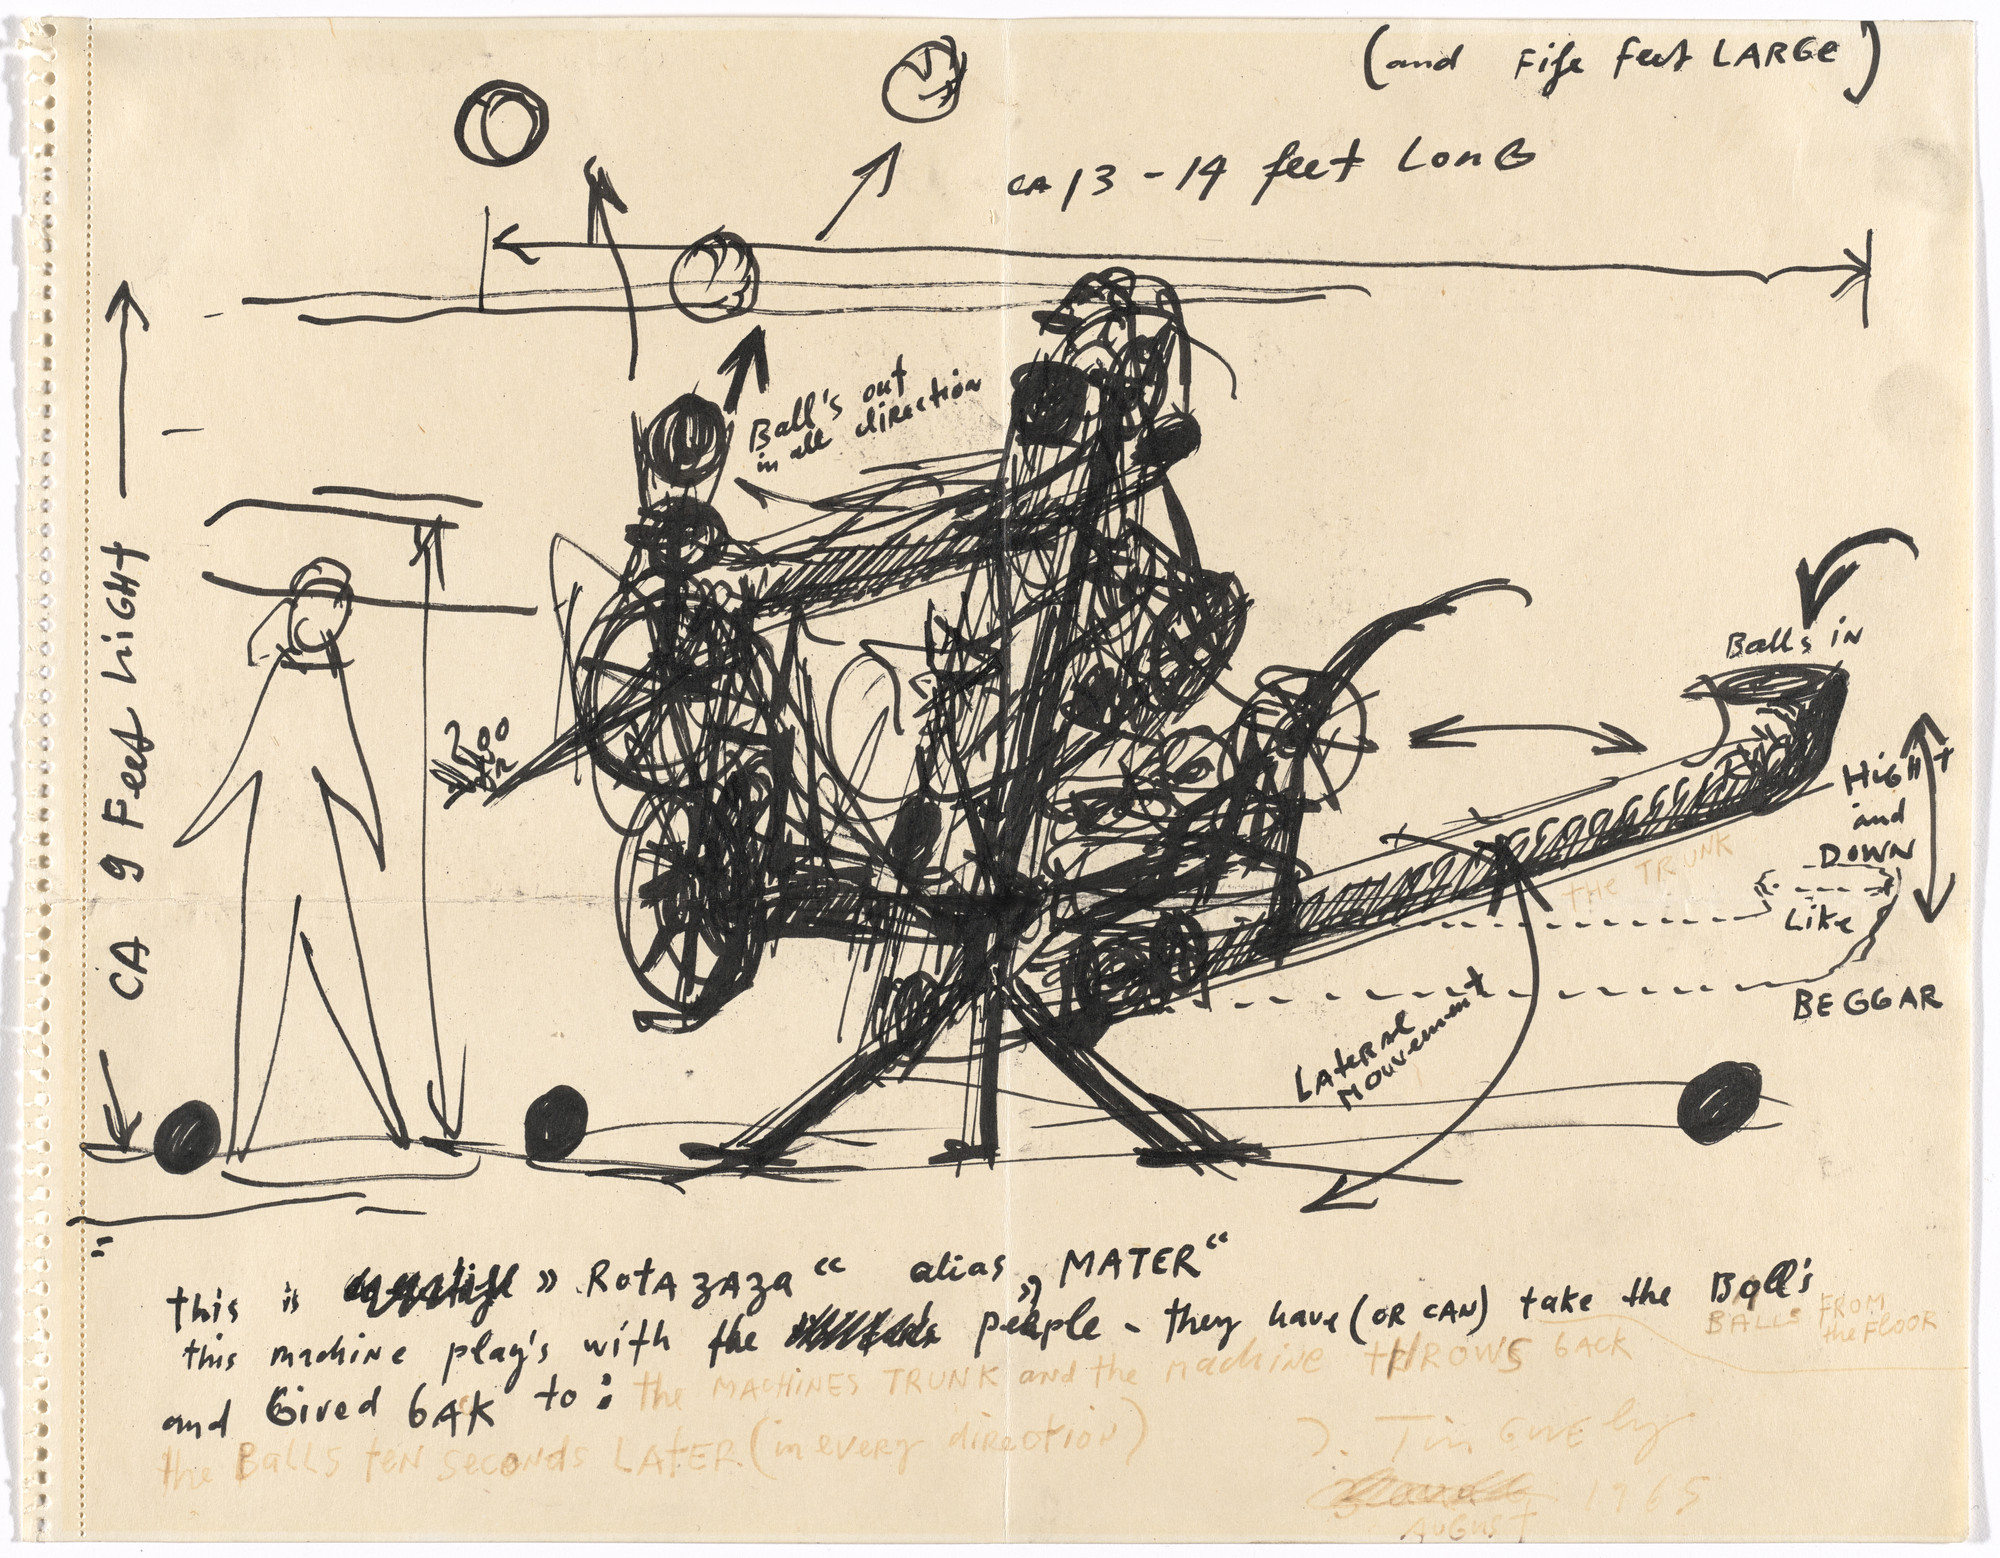 (and Fife feet LARGE)
CA 13 - 14 feet LonG
Ball's out
in all direction
CA 9 Feet hiGHt
Balls in
HiGHt
and
DOWN
Like
BEGGAR
the TRUNK
LAteRal
MOUVement
this is » RotAZAZA “ alias „ MATER “
this machine play's with the people - they have (OR CAN) take the Ball's
BALLS FROM
the FLOOR
and Gived bAK to : the MACHINES TRUNK and the machine tHROWS bACK
the BALLS teN SecoNds LATER (in every direction)
J. Tinguely
1965
AUGUST